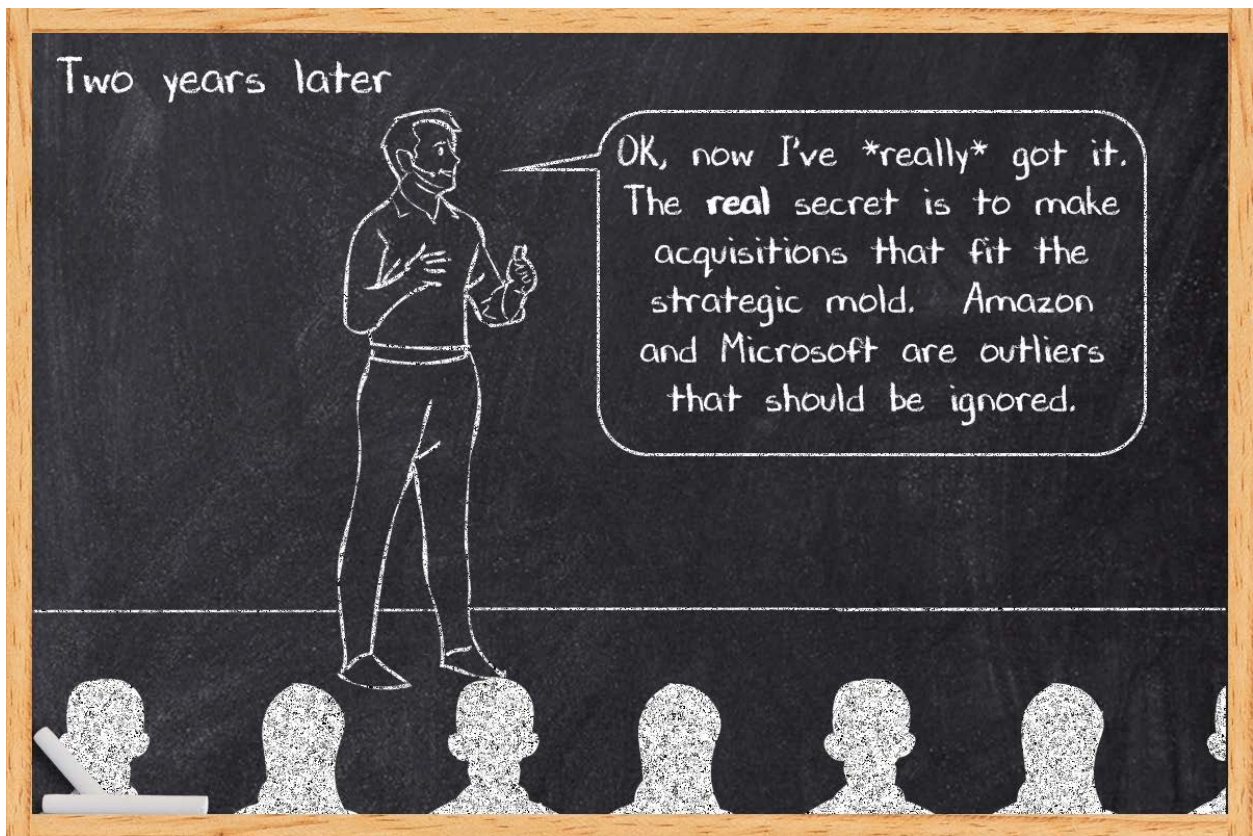 Two years later
OK, now I've *really* got it.
The real secret is to make
acquisitions that fit the
strategic mold. Amazon
and Microsoft are outliers
that should be ignored.